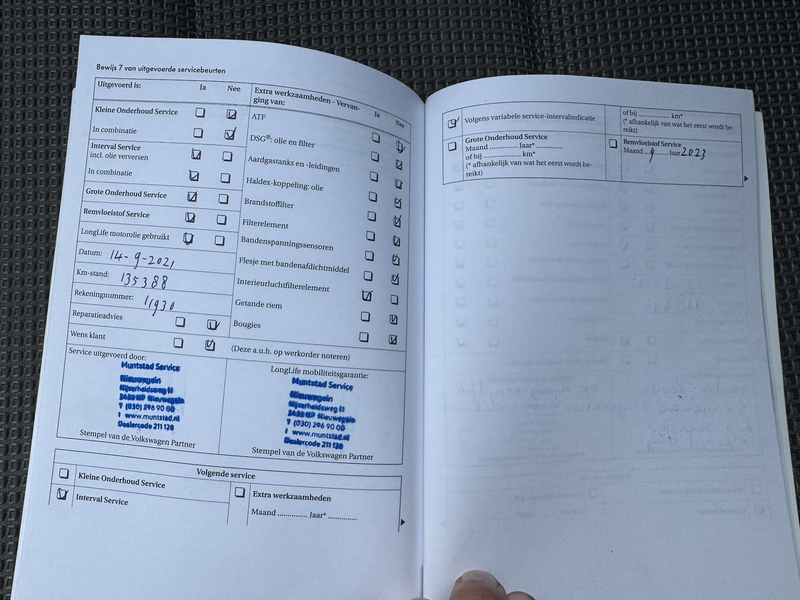 Bewijs 7 van uitgevoerde servicebeurten
Uitgevoerd is: Ja Nee
Kleine Onderhoud Service
In combinatie
Interval Service
incl. olie verversen
In combinatie
Grote Onderhoud Service
Remvloeistof Service
LongLife motorolie gebruikt
Datum: 14-9-2021
Km-stand: 135388
Rekeningnummer: 11930
Reparatieadvies
Wens klant
Extra werkzaamheden - Vervan-
ging van: Ja Nee
ATF
DSG®: olie en filter
Aardgastanks en -leidingen
Haldex-koppeling: olie
Brandstoffilter
Filterelement
Bandenspanningssensoren
Flesje met bandenafdichtmiddel
Interieurluchtfilterelement
Getande riem
Bougies
(Deze a.u.b. op werkorder noteren)
Service uitgevoerd door:
Muntstad Service
Nieuwegein
Nijverheidsweg 11
Nieuwegein
T (030) 296 90 00
I www.muntstad.nl
Dealercode 211 128
Stempel van de Volkswagen Partner
LongLife mobiliteitsgarantie:
Muntstad Service
Nieuwegein
Nijverheidsweg 11
Nieuwegein
T (030) 296 90 00
I www.muntstad.nl
Dealercode 211 128
Stempel van de Volkswagen Partner
Volgende service
Kleine Onderhoud Service
Interval Service
Extra werkzaamheden
Maand ............ Jaar* ............
Volgens variabele service-intervalindicatie
Grote Onderhoud Service
Maand ............ Jaar* ............
of bij ............ km*
(* afhankelijk van wat het eerst wordt be-
reikt)
of bij ............ km*
(* afhankelijk van wat het eerst wordt be-
reikt)
Remvloeistof Service
Maand 9 Jaar 2023